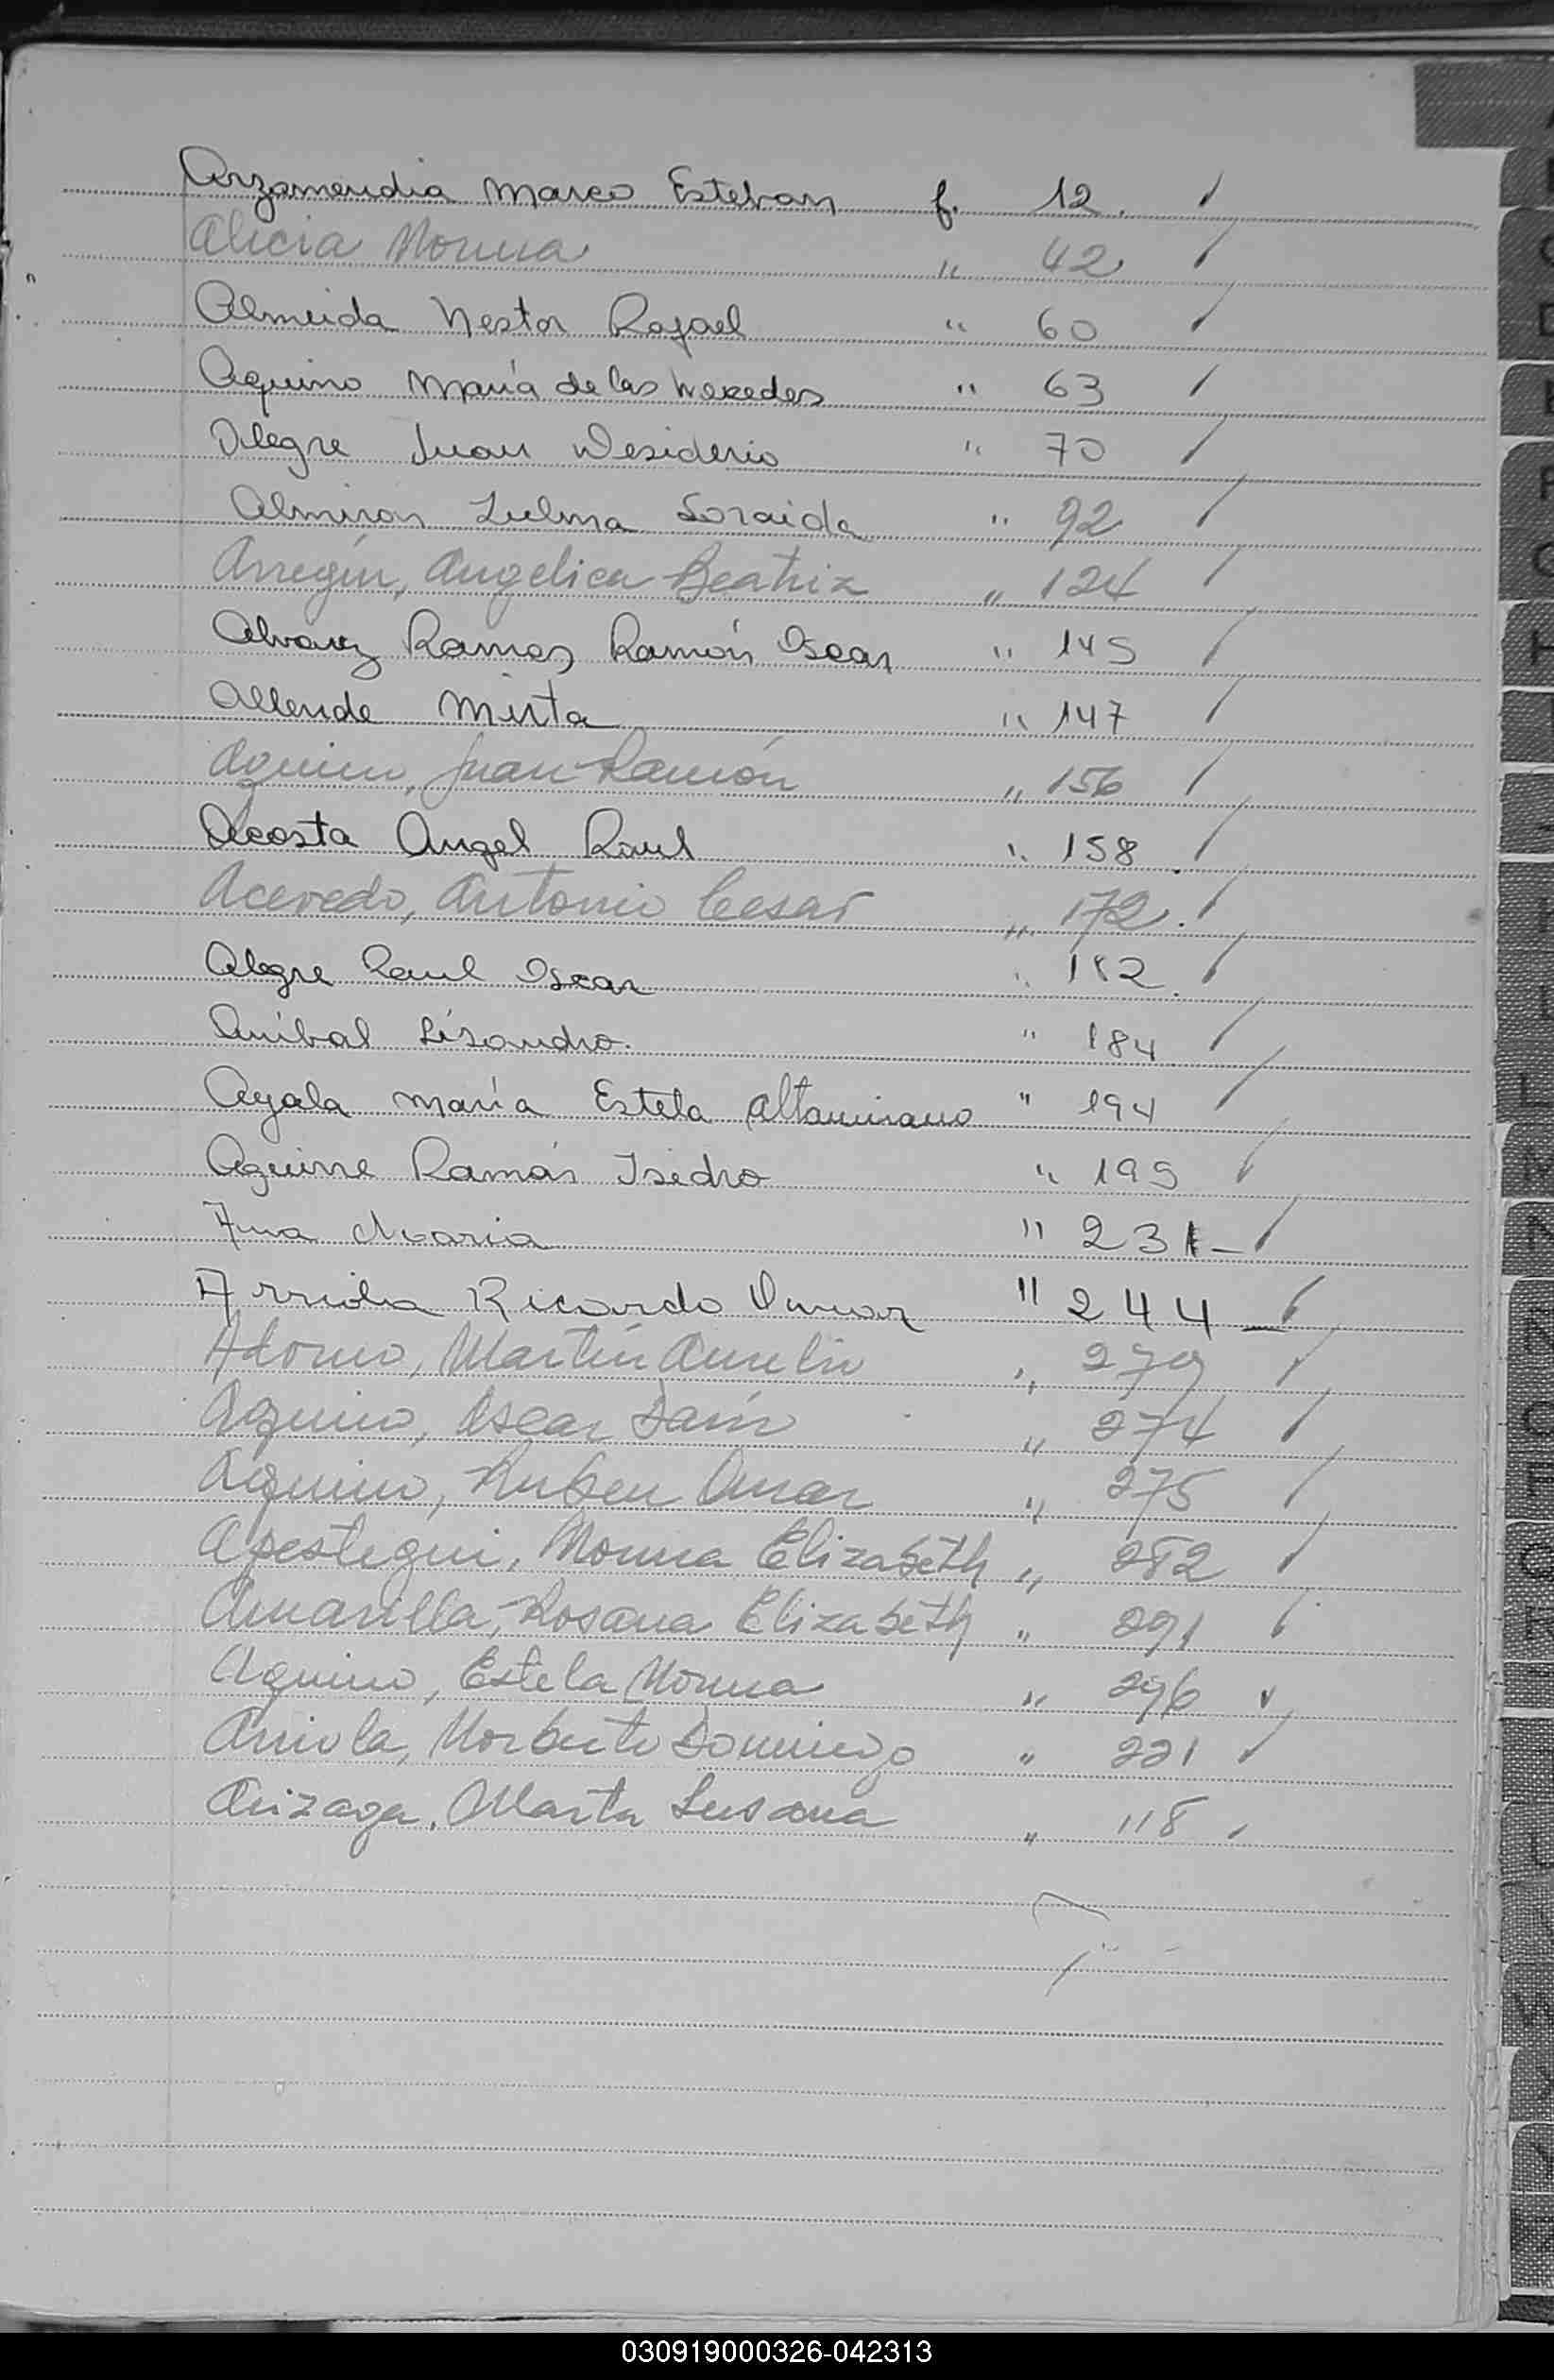 Arzamendia Marco Esteban f. 12. /
Alicia Norma " 42 /
Almeida Nestor Rafael " 60 /
Aquino María de las Mercedes " 63 /
Alegre Juan Desiderio " 70 /
Almiron Zulma Soraida " 92 /
Arregín, Angelica Beatriz " 124 /
Alvarez Ramos Ramón Oscar " 145 /
Allende Mirta " 147 /
Aquino, Juan Ramón " 156 /
Acosta Angel Raul " 158 /
Acevedo, Antonio Cesar " 172. /
Alegre Raul Oscar " 182. /
Anibal Lisandro. " 184 /
Ayala María Estela Altamirano " 194 /
Aguirre Ramón Isidro " 195 /
Ana Maria " 231 - /
Arriola Ricardo Omar " 244 - /
Adorno, Martín Aurelio " 279 /
Aquino, Oscar Darío " 274 /
Aquino, Ruben Omar " 275 /
Apestegui, Norma Elizabeth " 282 /
Amarilla, Rosana Elizabeth " 291 /
Aquino, Estela Norma " 296 /
Arriola, Norberto Domingo " 221 /
Arizaga, Marta Susana " 118 /
030919000326-042313